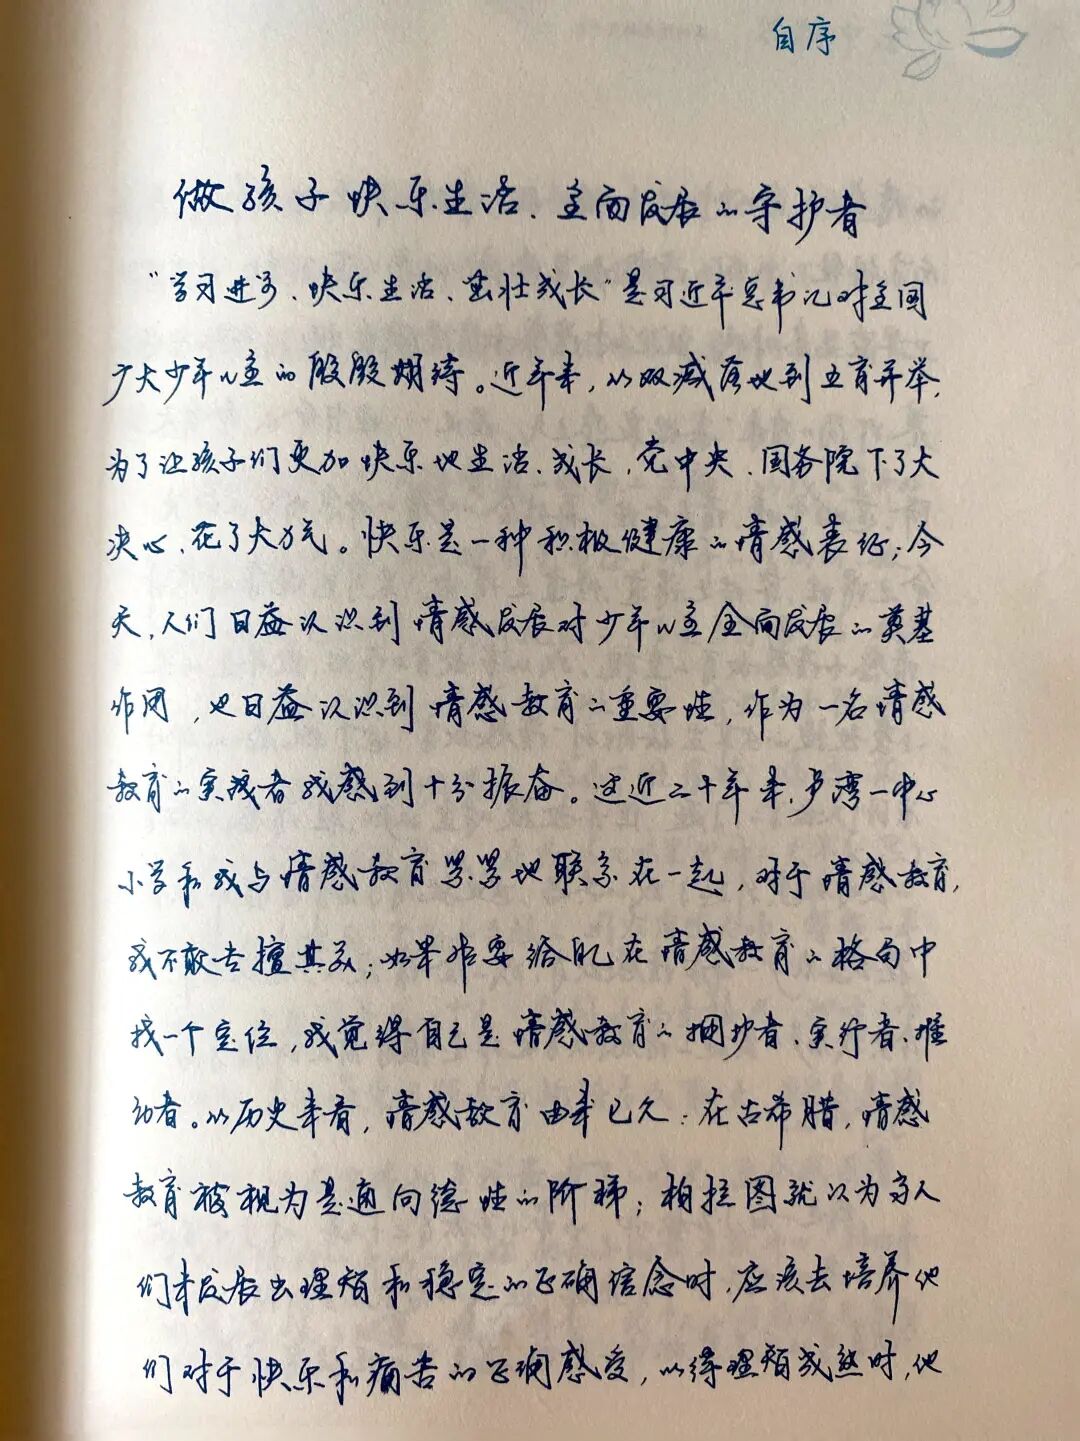 自序
做孩子快乐生活、全面发展的守护者
“学习进步、快乐生活、茁壮成长”是习近平总书记对全国
广大少年儿童的殷殷期待。近年来，从双减落地到五育并举，
为了让孩子们更加快乐地生活、成长，党中央、国务院下了大
决心、花了大力气。快乐是一种积极健康的情感表征；今
天，人们日益认识到情感发展对少年儿童全面发展的奠基
作用，也日益认识到情感教育的重要性，作为一名情感
教育的实践者我感到十分振奋。这近二十年来，卢湾一中心
小学和我与情感教育紧紧地联系在一起，对于情感教育，
我不敢去擅其美；如果非要给自己在情感教育的格局中
找一个定位，我觉得自己是情感教育的拥护者、实行者、推
动者。从历史来看，情感教育由来已久：在古希腊，情感
教育被视为是通向德性的阶梯；柏拉图就认为当人
们未发展出理智和稳定的正确信念时，应该去培养他
们对于快乐和痛苦的正确感受，以待理智成熟时，他